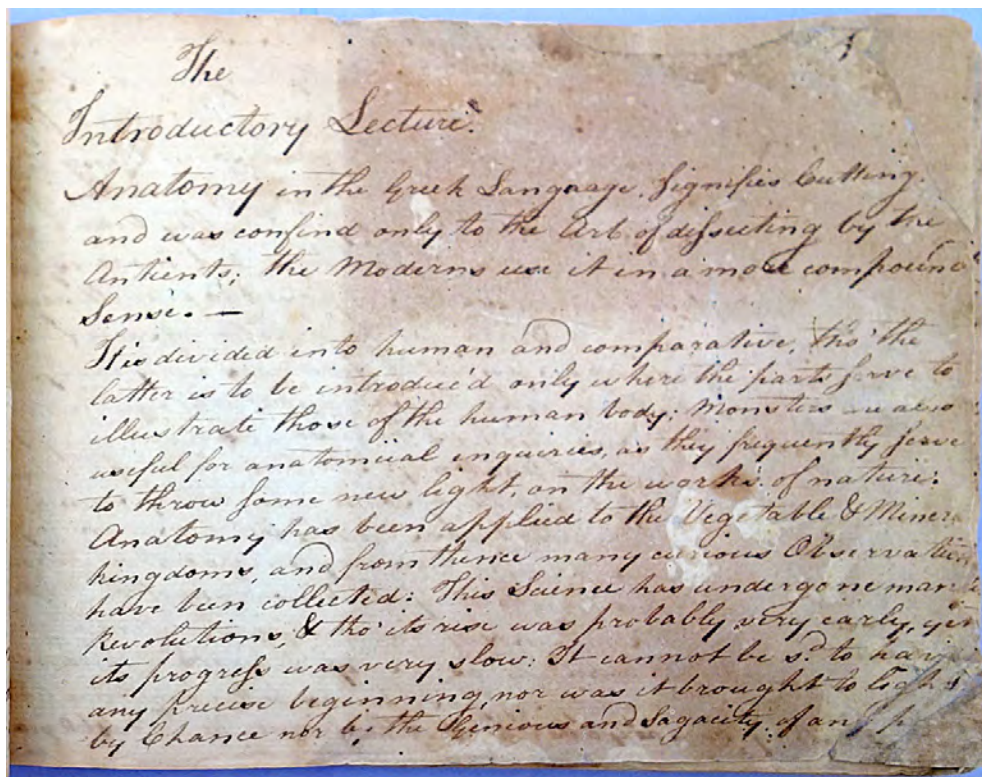 1
The
Introductory Lecture.
Anatomy in the Greek Language, signifies Cutting,
and was confind only to the Art of dissecting by the
Antients; the Moderns use it in a more compound
Sense. —
It is divided into human and comparative, tho' the
latter is to be introduc'd only where the parts serve to
illustrate those of the human body: Monsters are also
useful for anatomical enquiries, as they frequently serve
to throw some new light, on the works of nature:
Anatomy has been applied to the Vegetable & Minera
kingdoms, and from thence many curious Observation
have been collected: This Science has undergone man
Revolutions, & tho' its rise was probably very early, yet
its progress was very slow: It cannot be sd. to hav
any precise beginning, nor was it brought to light
by Chance nor by the Genious and Sagacity of any p